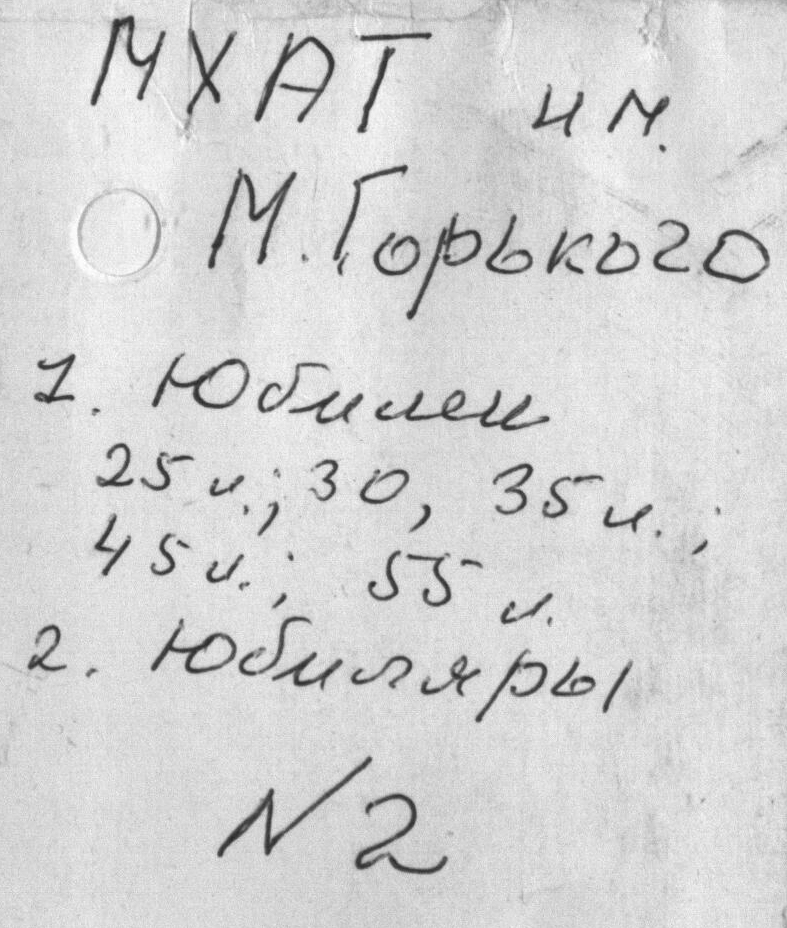 МХАТ им.
М. Горького
1. Юбилеи
25 л.; 30, 35 л.;
45 л.; 55 л.
2. Юбиляры
N 2